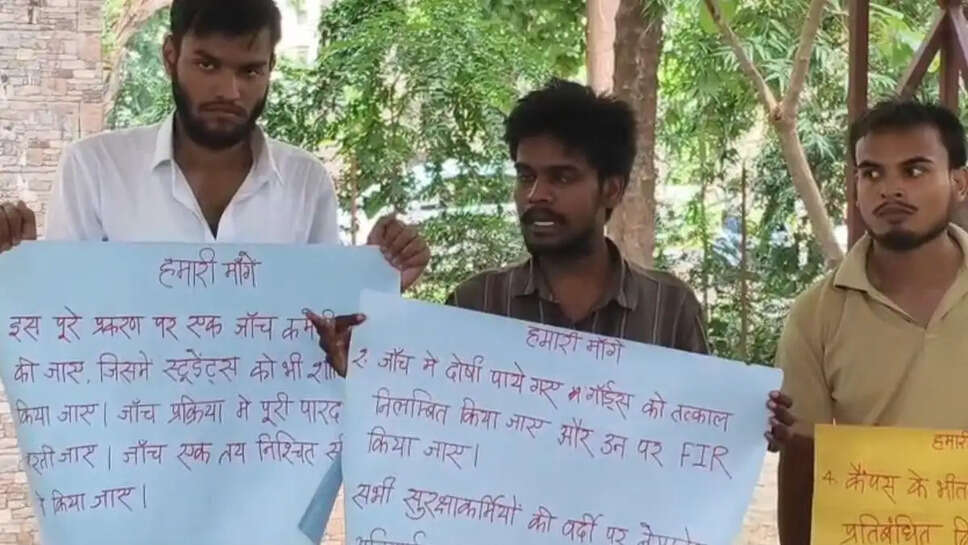 हमारी माँगे
इस पूरे प्रकरण पर एक जाँच
की जाए, जिसमें स्टूडेंट्स को भी
किया जाए। जाँच प्रक्रिया मे पूरी
जाए। जाँच एक तय निश्चित
किया जाए।
हमारी माँगे
2. जाँच मे दोषी पाये गए गॉर्ड्स को तत्काल
निलम्बित किया जाए और उन पर FIR
किया जाए।
सभी सुरक्षाकर्मियों की वर्दी पर
हमारी
4. कैंपस के
प्रतिबंधित